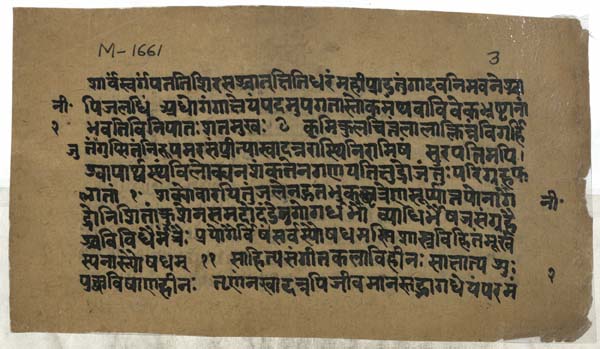 M-1661
3
शार्वंस्वर्गपततिशिरसश्चातत्क्षितिधरंमहीध्रादुत्तंगादवनिमवनेश्चा
नी॰ पिजलधिं अधोगंगासेयंपदमुपगतास्तोकमथवाविवेकभ्रष्टानां
२ भवतिविनिपातः शतमुखः ९ कृमिकुलचितंलालाक्लिन्नंविगर्हि
जु तंगुप्सितंनिरूपमरसंप्रीत्याखादन्नरास्थिनिरामिषं सुरपतिमपि
श्वापार्श्वस्थंविलोक्यनशंकतेनगणयतिक्षुद्रोजंतुः परिग्रहफ
ल्गुतां १० शक्योवारयितुंजलेनहुतभुक्छत्रेणसूर्यातपोनागें
द्रोनिशितांकुशेनसमदोदंडेनगोगर्धभौ व्याधिर्भेषजसंग्रहै नी॰
श्चविविधैर्मंत्रैः प्रयोगैर्विषंसर्वस्यौषधमस्तिशास्त्रविहितंमूर्ख
स्यनास्त्यौषधम् ११ साहित्यसंगीतकलाविहीनः साक्षात्पशुः २
पुच्छविषाणहीनः तृणंनखादन्नपिजीवमानस्तद्भागधेयंपरमं